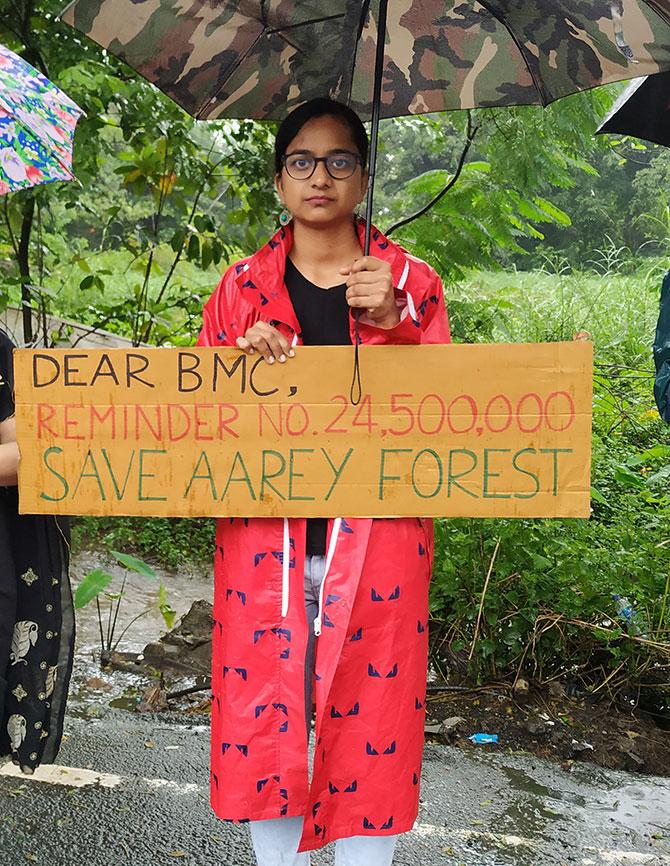 DEAR BMC,
REMINDER NO. 24,500,000
SAVE AAREY FOREST